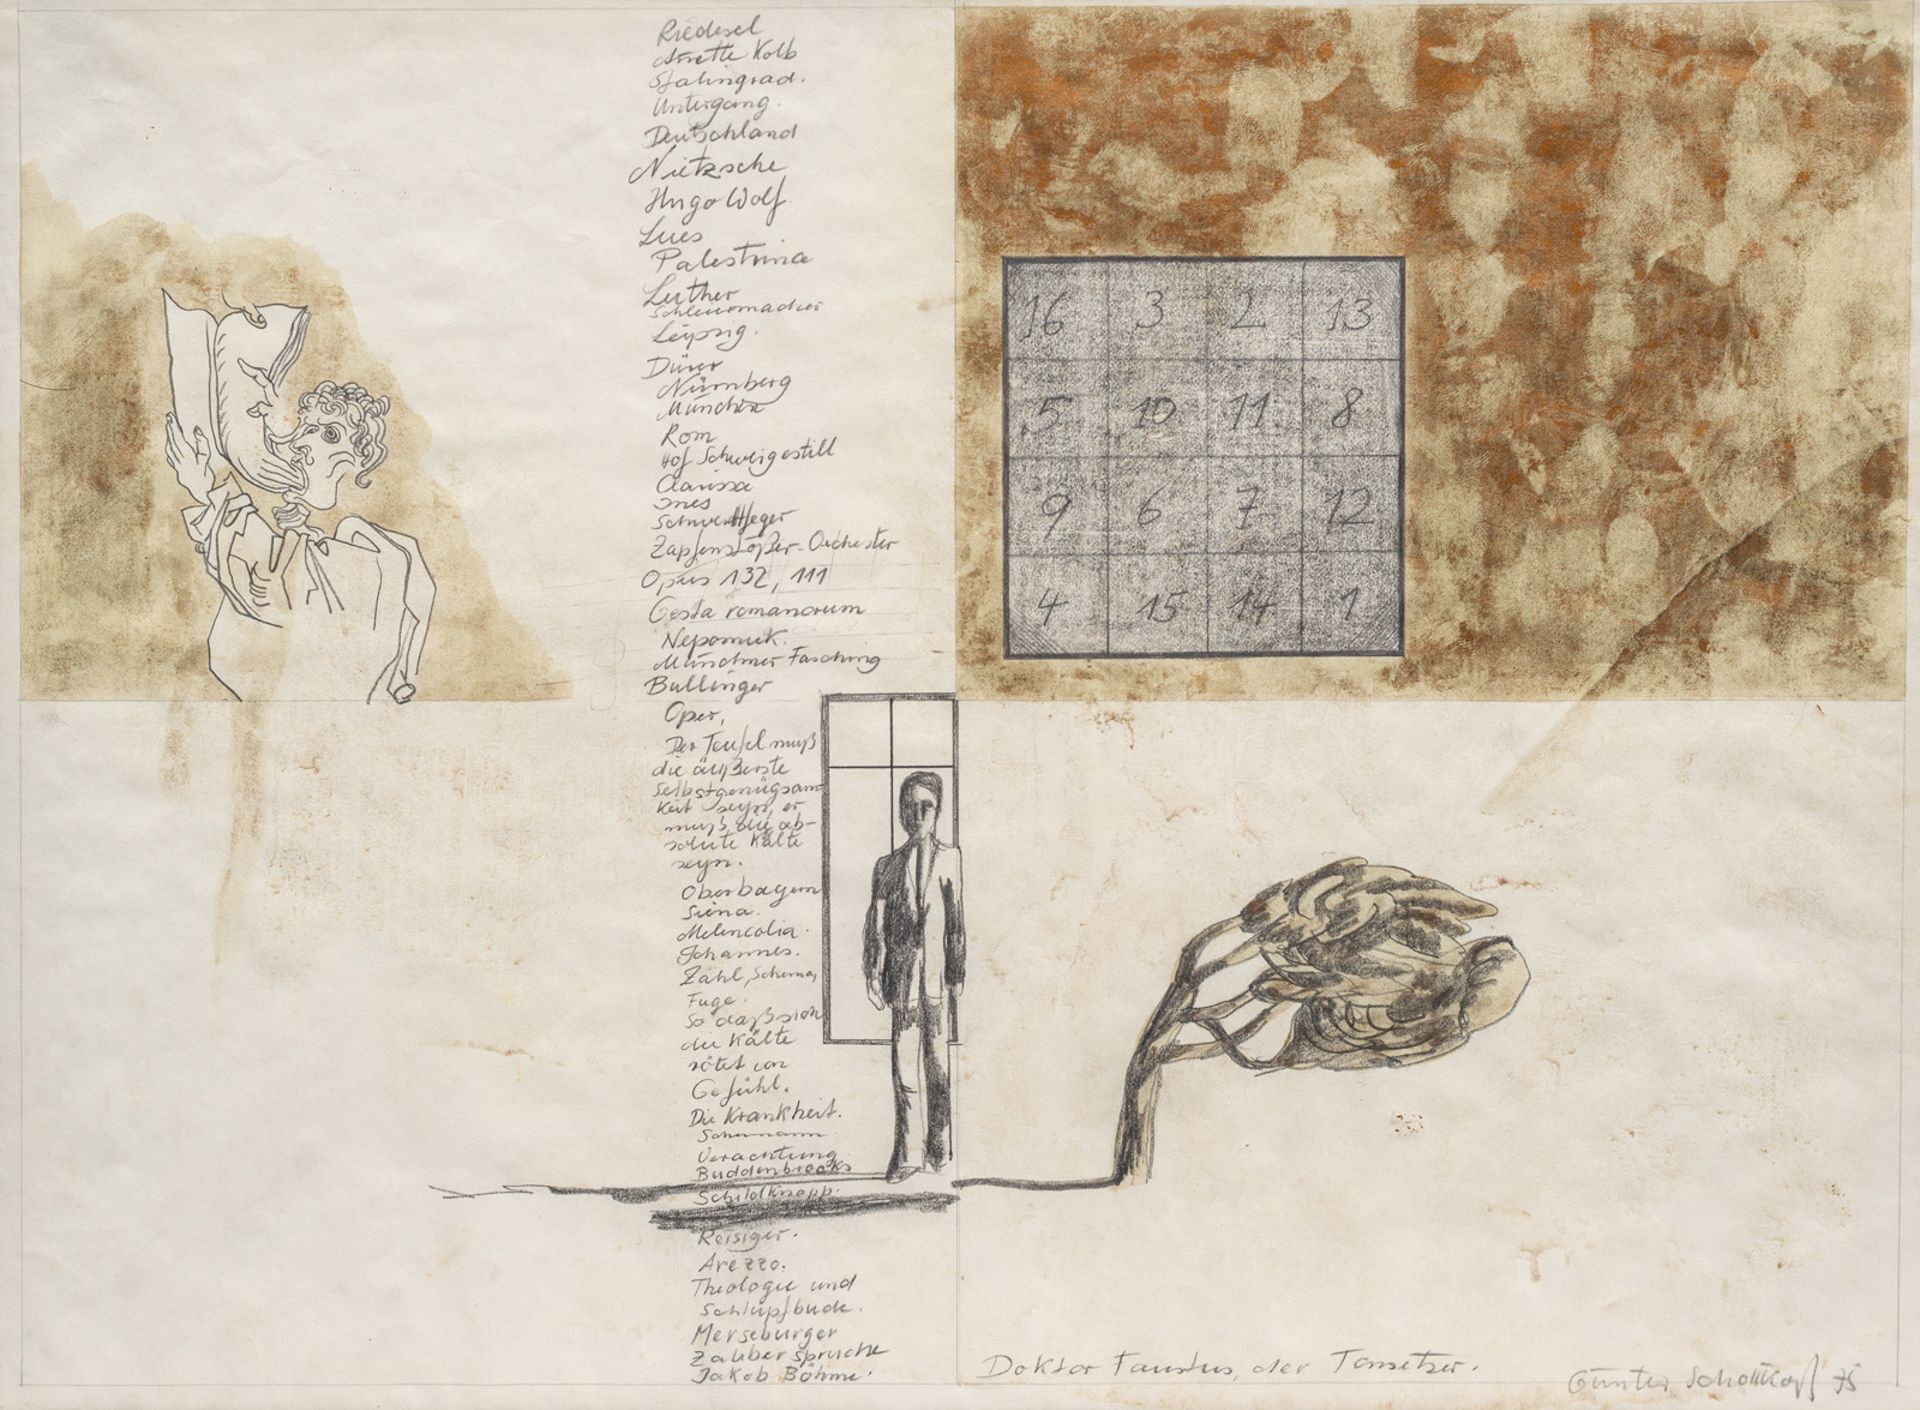 Riedesel
Annette Kolb
Stalingrad.
Untergang.
Deutschland
Nietzsche
Hugo Wolf
Lues
Palestrina
Luther
Schleiermacher
Leipzig.
Dürer
Nürnberg
München
Rom
Hof Schweigestill
Clarissa
Ines
Schwerdtfeger
Zapfenstößer-Orchester
Opus 132, 111
Gesta romanorum
Nepomuk.
Münchner Fasching
Bullinger
Oper,
Der Teufel muß
die äußerste
Selbstgenügsam
keit seyn, er
muß die ab-
solute Kälte
seyn.
Oberbayern
Siena.
Melencolia.
Johannes.
Zahl, Schema,
Fuge.
So daß sich
die Kälte
rötet von
Gefühl.
Die Krankheit.
Schumann
Verachtung
Buddenbrooks
Schildknapp.
Reisiger.
Arezzo.
Theologie und
Schlüpfbude.
Merseburger
Zaubersprüche
Jakob Böhme.
16 3 2 13
5 10 11 8
9 6 7 12
4 15 14 1
Doktor Faustus, der Tonsetzer.
Günter Schöllkopf 75